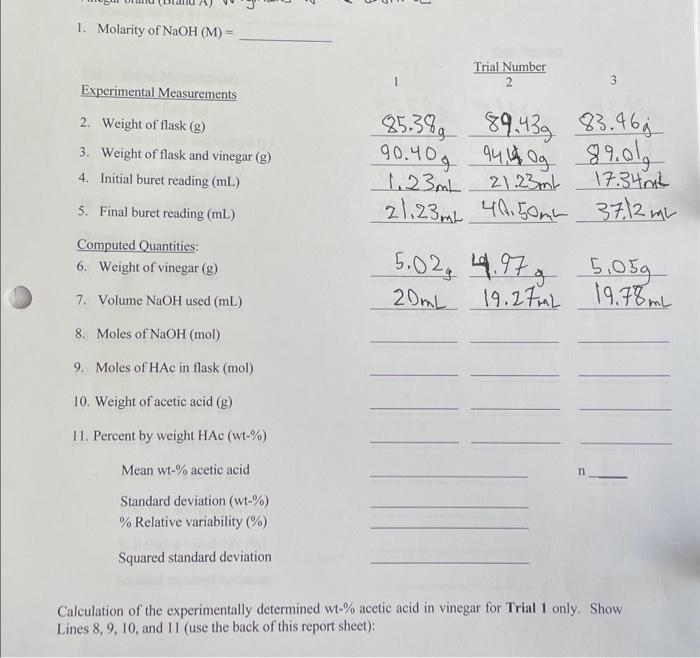 1. Molarity of NaOH (M) =
Trial Number
1 2 3
Experimental Measurements
2. Weight of flask (g) 85.38g 89.43g 83.46g
3. Weight of flask and vinegar (g) 90.40g 94.40g 89.01g
4. Initial buret reading (mL) 1.23mL 21.23mL 17.34mL
5. Final buret reading (mL) 21.23mL 40.50mL 37.12mL
Computed Quantities:
6. Weight of vinegar (g) 5.02g 4.97g 5.05g
7. Volume NaOH used (mL) 20mL 19.27mL 19.78mL
8. Moles of NaOH (mol)
9. Moles of HAc in flask (mol)
10. Weight of acetic acid (g)
11. Percent by weight HAc (wt-%)
Mean wt-% acetic acid n
Standard deviation (wt-%)
% Relative variability (%)
Squared standard deviation
Calculation of the experimentally determined wt-% acetic acid in vinegar for Trial 1 only. Show
Lines 8, 9, 10, and 11 (use the back of this report sheet):